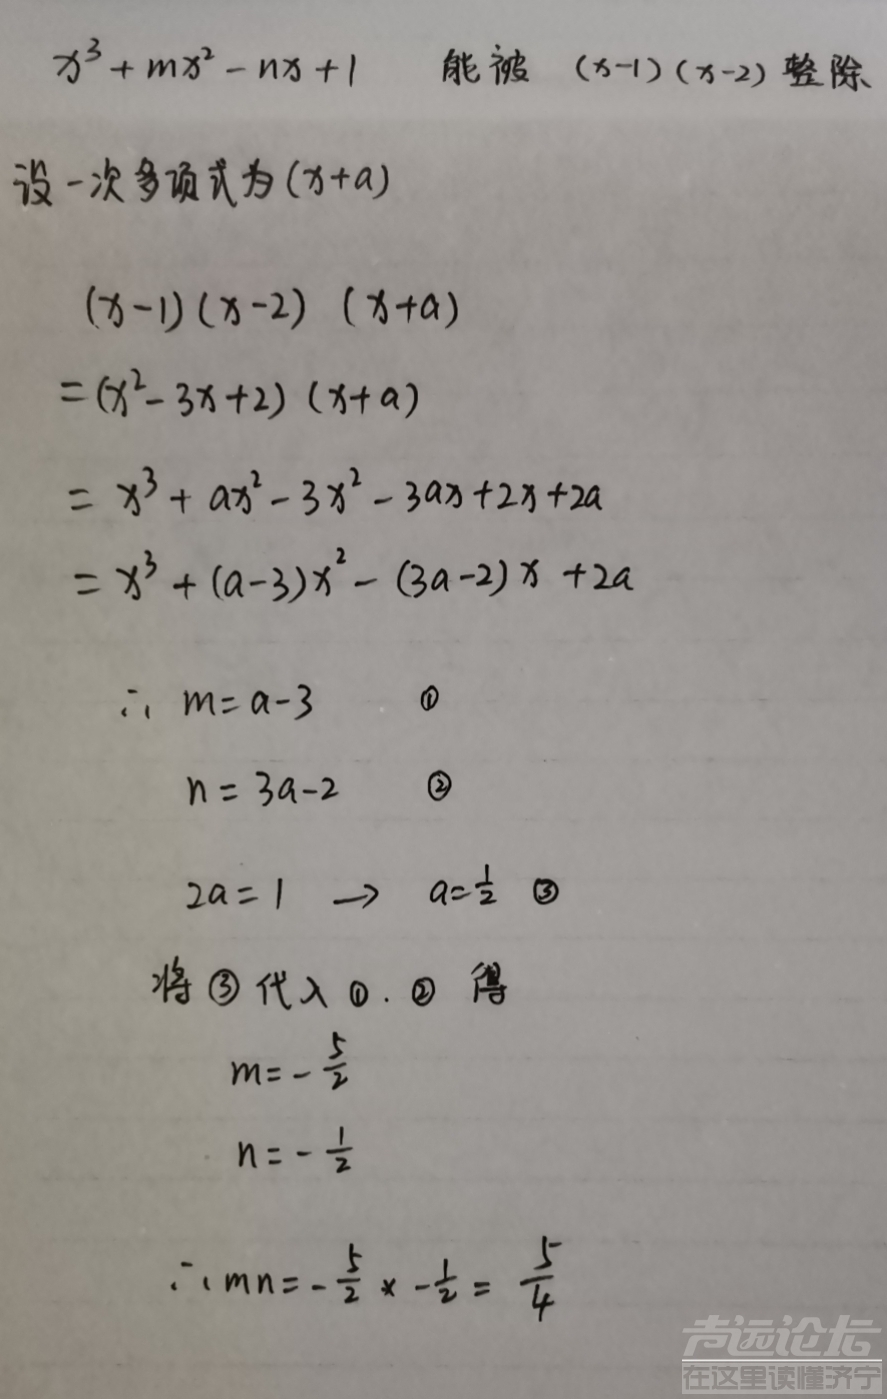 x³+mx²-nx+1 能被 (x-1)(x-2) 整除
设一次多项式为(x+a)
(x-1)(x-2) (x+a)
=(x²-3x+2)(x+a)
= x³+ax²-3x²-3ax+2x+2a
= x³+(a-3)x²-(3a-2)x+2a
∴ m=a-3 ①
n=3a-2 ②
2a=1 → a=1/2 ③
将③代入①.②得
m=-5/2
n=-1/2
∴mn=-5/2×-1/2=5/4
声远论坛
在这里读懂济宁